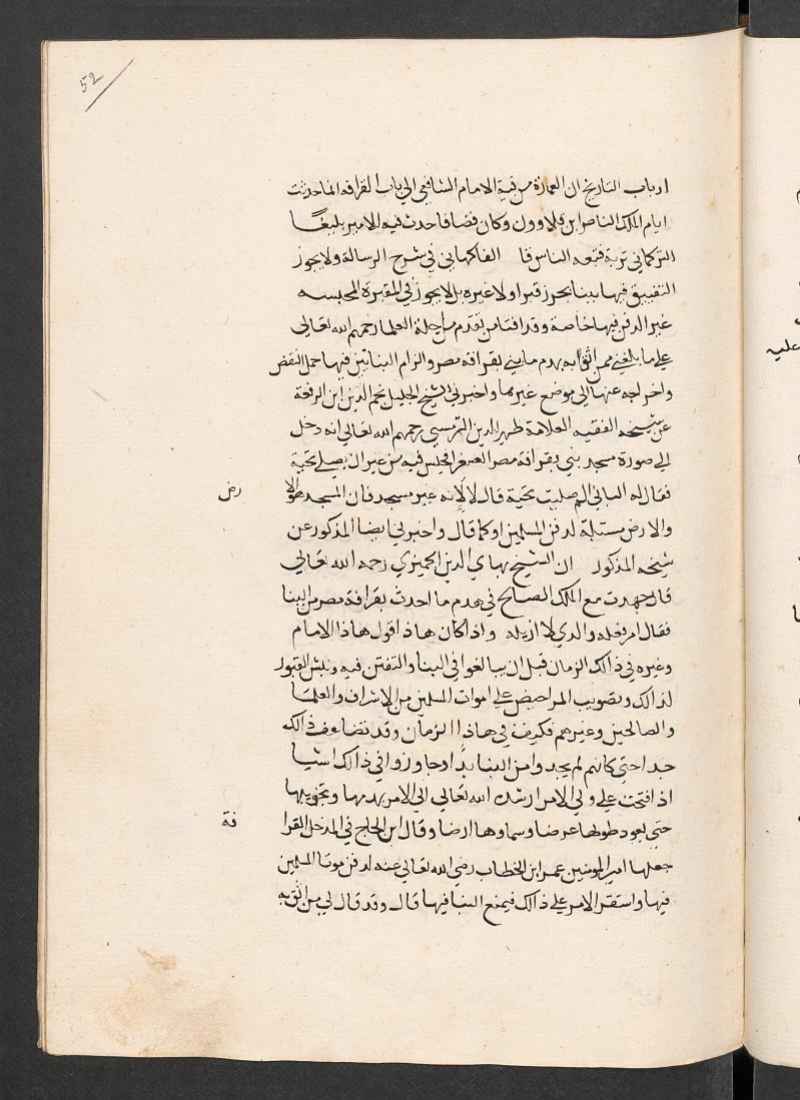 52
ارباب التاريخ ان العمارة من قبة الامام الشافعي الي باب القرافه انما حدثت
ايام الملك الناصر ابن قلاوون وكان فضا فاحدث فيه الامير يلبغا
التركماني تربة فتبعه الناس قا الفاكهاني في شرح الرسالة ولا يجوز
التضييق فيها ببنا يحوز قبرا ولا غيره بل لا يجوز في المقبرة المحبسه
غير الدفن فيها خاصة وقد افتا من تقدم من جلة العلما رحمهم الله تعالى
علي ما بلغني ممن اثق به بهدم ما بني بقرافة مصر والزام البنائين فيها حمل النقض
واخراجه عنها الي موضع غيرها واخبرني الشيخ الجليل نجم الدين ابن الرفعة
عن شيخه الفقيه العلامة ظهير الدين التزمنتي رحمهم الله تعالي انه دخل
الي صورة مسجد بني بقرافة مصر الصغرا فجلس فيه من غير ان يصلي تحية
فقال له الباني الم صليت تحية قال لا لانه غير مسجد فان المسجد هو الا رض
والارض مسبلة لدفن المسلمين او كما قال واخبرني ايضا المذكور عن
شيخه المذكور ان الشيخ بهاي الدين الجميزي رحمه الله تعالي
قال جهدت مع الملك الصالح في هدم ما احدث بقرافة مصر من البنا
فقال امر فعله والدي لا ازيله واذا كان هاذا قول هاذا الامام
وغيره في ذالك الزمان قبل ان يبالغوا في البنا والتفنن فيه ونبش القبور
لذالك وتصويب المراحيض علي اموات المسلمين من الاشراف والعلما
والصالحين وغيرهم فكيف في هاذا الزمان وقد تضاعف ذالك
جدا حتي كانهم لم يجدوا من البنا بدا وجاوزوا في ذالك اشيا
اذ افتت علي ولي الامر ارشده الله تعالي الي الامر بهدمها وتخريبها
حتي يعود طولها عرضا وسماوها ارضا وقال ابن الحاج في المدخل القرا فة
جعلها امير المومنين عمر ابن الخطاب رضي الله تعالي عنه لدفن موتا المسلمين
فيها واستقر الامر علي ذالك فيمنع البنا فيها قال وقد قال لي من اثق به